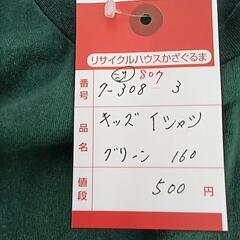 リサイクルハウスかざぐるま
番号 ニタ 807
7-308 3
品名 キッズ Tシャツ
グリーン 160
値段 500円